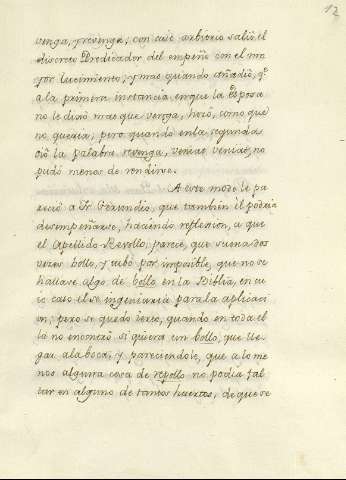 12
venga, y revenga; con cuio arbitrio salió el
discreto Predicador del empeño con el ma
yor lucimiento, y mas quando añadió, q.
a la primera instancia en que la Esposa
no le dixo mas que venga, hozó, como que
no queria; pero quando en la segunda
oió la palabra revenga, veniat veniat, no
pudo menos de rendirse.
A este modo le pa
reció a Fr. Gerundio, que tambien él podria
desempeñarse, haciendo reflexion, a que
el Apellido Revollo, parece, que suena dos
vezes bollo, y tubo por imposible, que no se
hallase algo de bollo en la Biblia, en cu
io caso el se ingeniaria para la aplicaci
on; pero se quedó yerto, quando en toda el
la no encontró si quiera un bollo, que lle
gar a la boca, y pareciendole, que a lo me
nos alguna cosa de repollo no podia fal
tar en alguno de tantos huertos, de que se